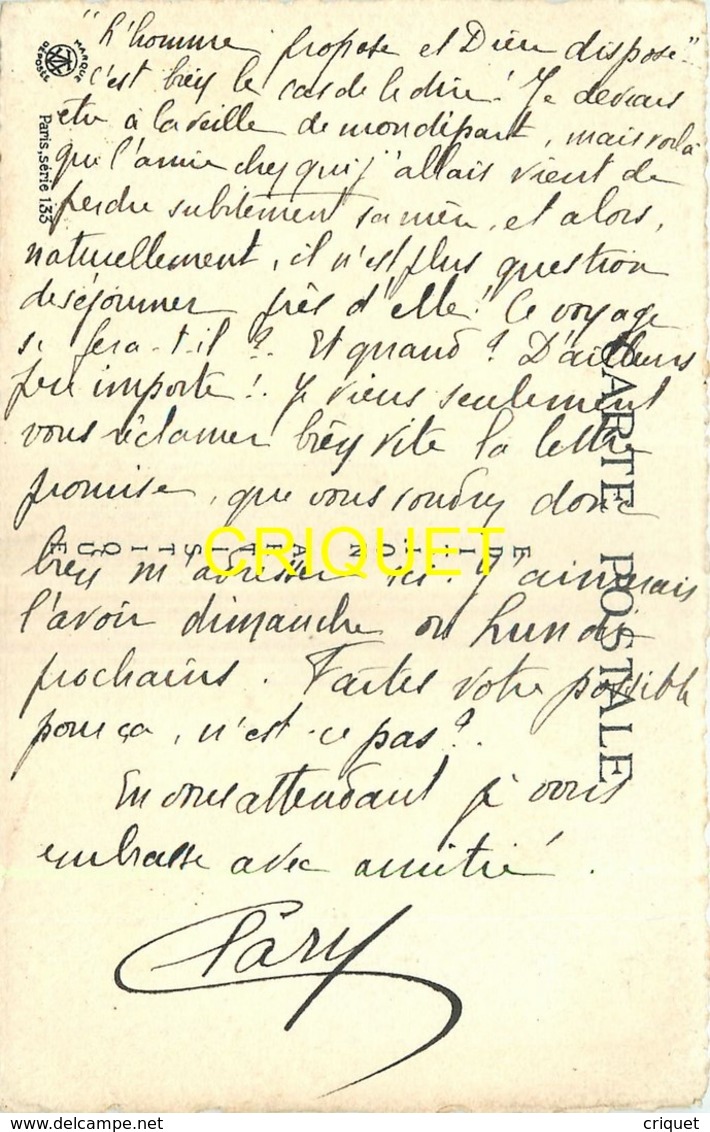 "L'homme propose et Dieu dispose"
c'est bien le cas de le dire ! Je devais
être à la veille de mon départ, mais voilà
que l'amie chez qui j'allais vient de
perdre subitement sa mère, et alors,
naturellement, il n'est plus question
de séjourner près d'elle ! Ce voyage
se fera-t-il ? Et quand ? D'ailleurs
peu importe ! Je viens seulement
vous réclamer bien vite la lettre
promise, que vous voudrez donc
bien m'adresser ici. J'aimerais
l'avoir dimanche ou lundi
prochains. Faites votre possible
pour ça, n'est-ce pas ?
En vous attendant je vous
embrasse avec amitié.
MARQUE DÉPOSÉE
Paris, série 133
CARTE POSTALE
EDITION ARTISTIQUE
CRIQUET
www.delcampe.net
criquet